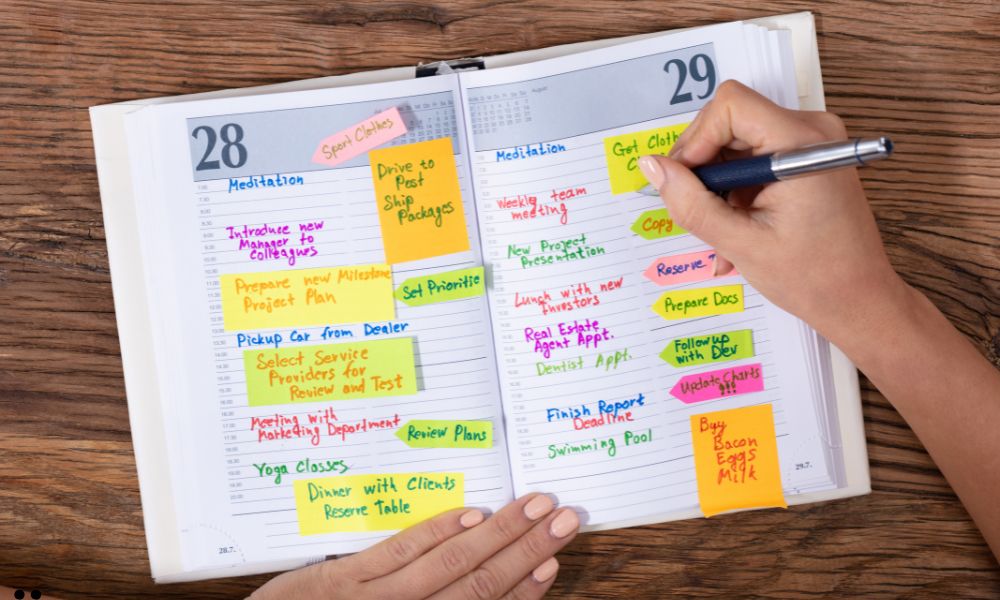 28
Sport Clothes
Meditation
Drive to
Post
Ship
Packages
Introduce new
Manager to
Colleagues
Prepare new Milestone
Project Plan
Set Prioritie
Pickup Car from Dealer
Select Service
Providers for
Review and Test
Meeting with
Marketing Department
Review Plans
Yoga Classes
Dinner with Clients
Reserve Table
28.7.
August
29
Meditation
Get Cloth
Weekly team
meeting
Copy
New Project
Presentation
Reserve
Lunch with new
Investors
Prepare Docs
Real Estate
Agent Appt.
Followup
with Dev
Dentist Appt.
Update Charts
!!!
Finish Report
Deadline
Swimming Pool
Buy
Bacon
Eggs
Milk
29.7.